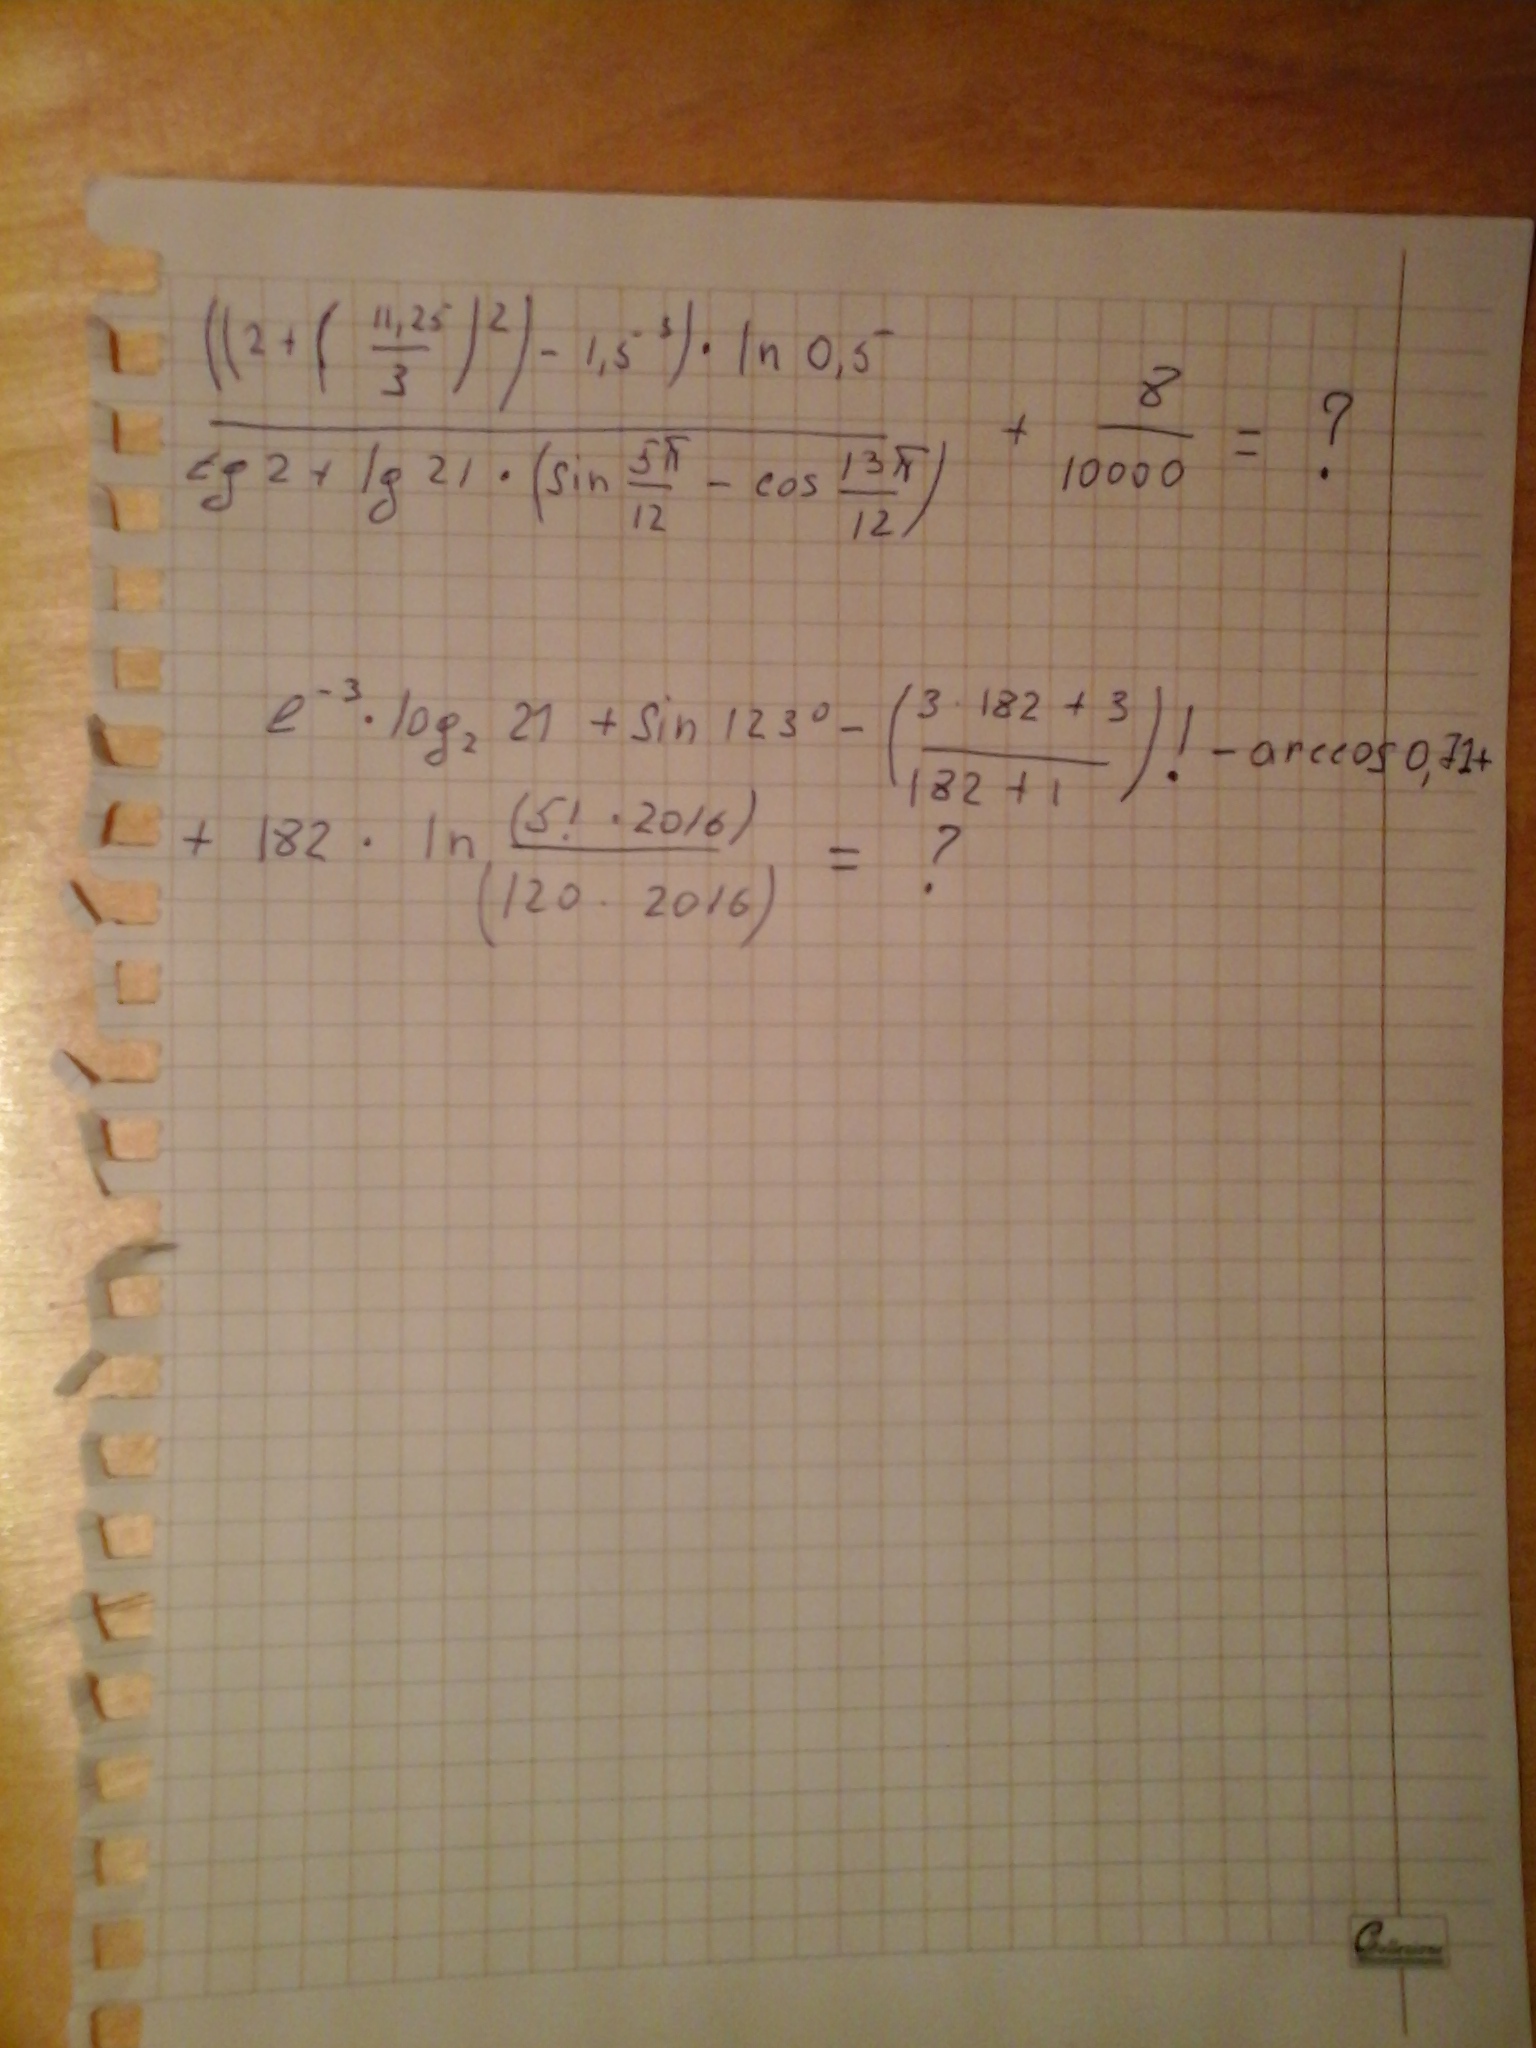 ((2 + (11,25/3)²) - 1,5³) · ln 0,5 / (tg 2 + lg 21 · (sin 5π/12 - cos 13π/12)) + 8/10000 = ?
e⁻³ · log₂ 21 + sin 123° - ((3 · 182 + 3)/(182 + 1))! - arccos 0,71 +
+ 182 · ln (5! · 2016)/(120 · 2016) = ?